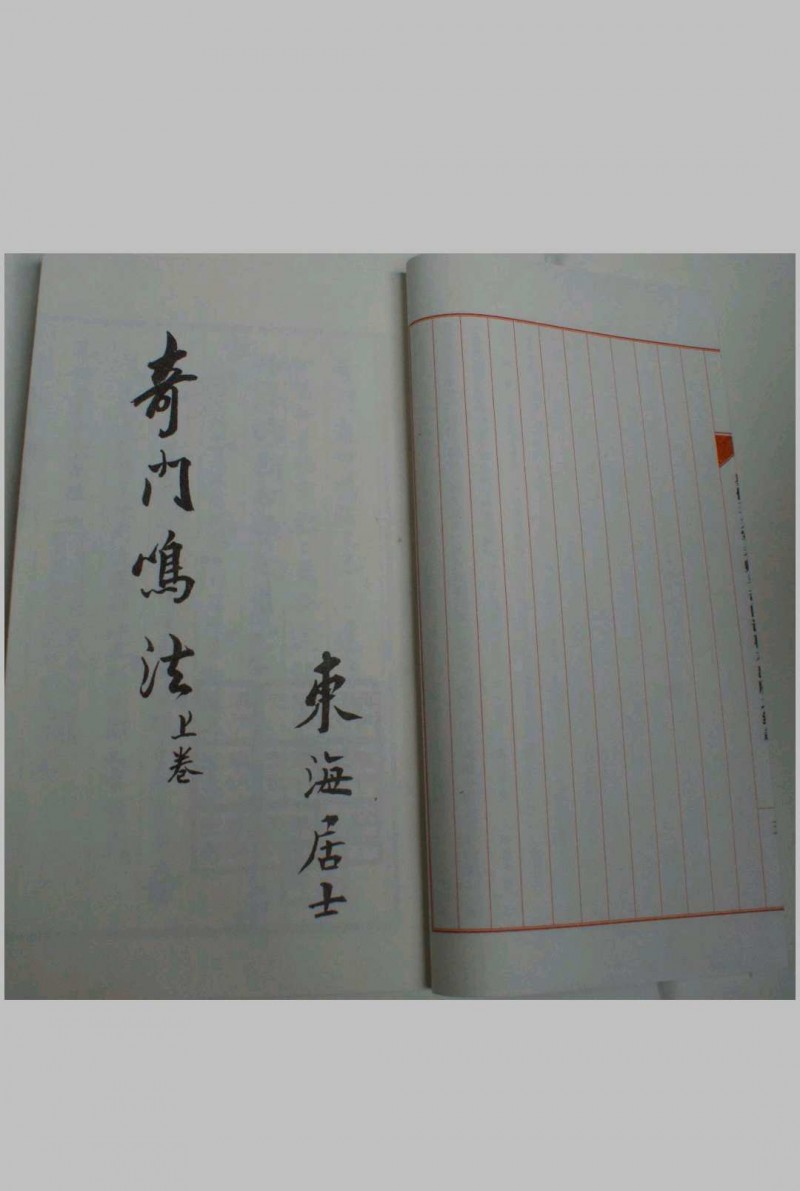 東海居士
奇门鳴法上卷